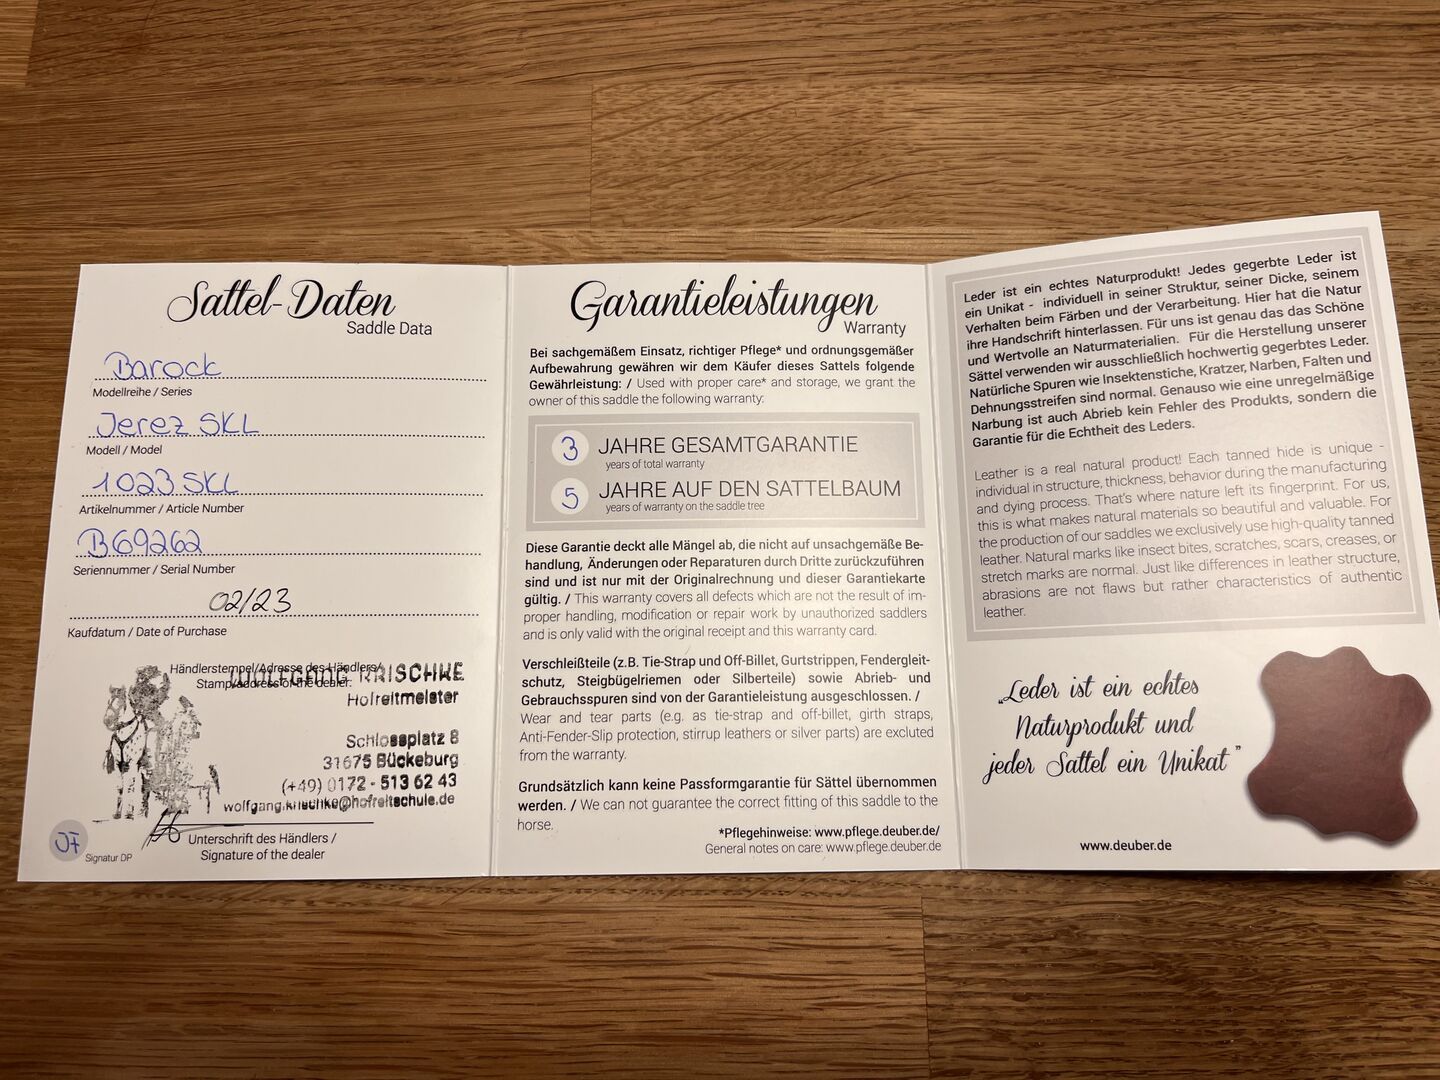 Sattel-Daten
Saddle Data
Barock
Modellreihe / Series
Jerez SKL
Modell / Model
1023 SKL
Artikelnummer / Article Number
B69262
Seriennummer / Serial Number
02/23
Kaufdatum / Date of Purchase
Händlerstempel/Adresse des Händlers/
Stamp/address of the dealer:
WOLFGANG KRISCHKE
Hofreitmeister
Schlossplatz 8
31675 Bückeburg
(+49) 0172 - 513 62 43
wolfgang.krischke@hofreitschule.de
JF
Signatur DP
Unterschrift des Händlers /
Signature of the dealer
Garantieleistungen
Warranty
Bei sachgemäßem Einsatz, richtiger Pflege* und ordnungsgemäßer
Aufbewahrung gewähren wir dem Käufer dieses Sattels folgende
Gewährleistung: / Used with proper care* and storage, we grant the
owner of this saddle the following warranty:
3 JAHRE GESAMTGARANTIE
years of total warranty
5 JAHRE AUF DEN SATTELBAUM
years of warranty on the saddle tree
Diese Garantie deckt alle Mängel ab, die nicht auf unsachgemäße Be-
handlung, Änderungen oder Reparaturen durch Dritte zurückzuführen
sind und ist nur mit der Originalrechnung und dieser Garantiekarte
gültig. / This warranty covers all defects which are not the result of im-
proper handling, modification or repair work by unauthorized saddlers
and is only valid with the original receipt and this warranty card.
Verschleißteile (z.B. Tie-Strap und Off-Billet, Gurtstrippen, Fendergleit-
schutz, Steigbügelriemen oder Silberteile) sowie Abrieb- und
Gebrauchsspuren sind von der Garantieleistung ausgeschlossen. /
Wear and tear parts (e.g. as tie-strap and off-billet, girth straps,
Anti-Fender-Slip protection, stirrup leathers or silver parts) are excluted
from the warranty.
Grundsätzlich kann keine Passformgarantie für Sättel übernommen
werden. / We can not guarantee the correct fitting of this saddle to the
horse.
*Pflegehinweise: www.pflege.deuber.de/
General notes on care: www.pflege.deuber.de
Leder ist ein echtes Naturprodukt! Jedes gegerbte Leder ist
ein Unikat - individuell in seiner Struktur, seiner Dicke, seinem
Verhalten beim Färben und der Verarbeitung. Hier hat die Natur
ihre Handschrift hinterlassen. Für uns ist genau das das Schöne
und Wertvolle an Naturmaterialien. Für die Herstellung unserer
Sättel verwenden wir ausschließlich hochwertig gegerbtes Leder.
Natürliche Spuren wie Insektenstiche, Kratzer, Narben, Falten und
Dehnungsstreifen sind normal. Genauso wie eine unregelmäßige
Narbung ist auch Abrieb kein Fehler des Produkts, sondern die
Garantie für die Echtheit des Leders.
Leather is a real natural product! Each tanned hide is unique -
individual in structure, thickness, behavior during the manufacturing
and dying process. That's where nature left its fingerprint. For us,
this is what makes natural materials so beautiful and valuable. For
the production of our saddles we exclusively use high-quality tanned
leather. Natural marks like insect bites, scratches, scars, creases, or
stretch marks are normal. Just like differences in leather structure,
abrasions are not flaws but rather characteristics of authentic
leather.
„Leder ist ein echtes
Naturprodukt und
jeder Sattel ein Unikat"
www.deuber.de